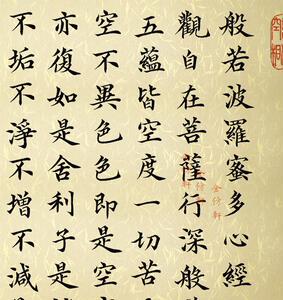 般若波羅蜜多心經
觀自在菩薩行深般
五蘊皆空度一切苦
空不異色色即是空
亦復如是舍利子是
不垢不淨不增不減